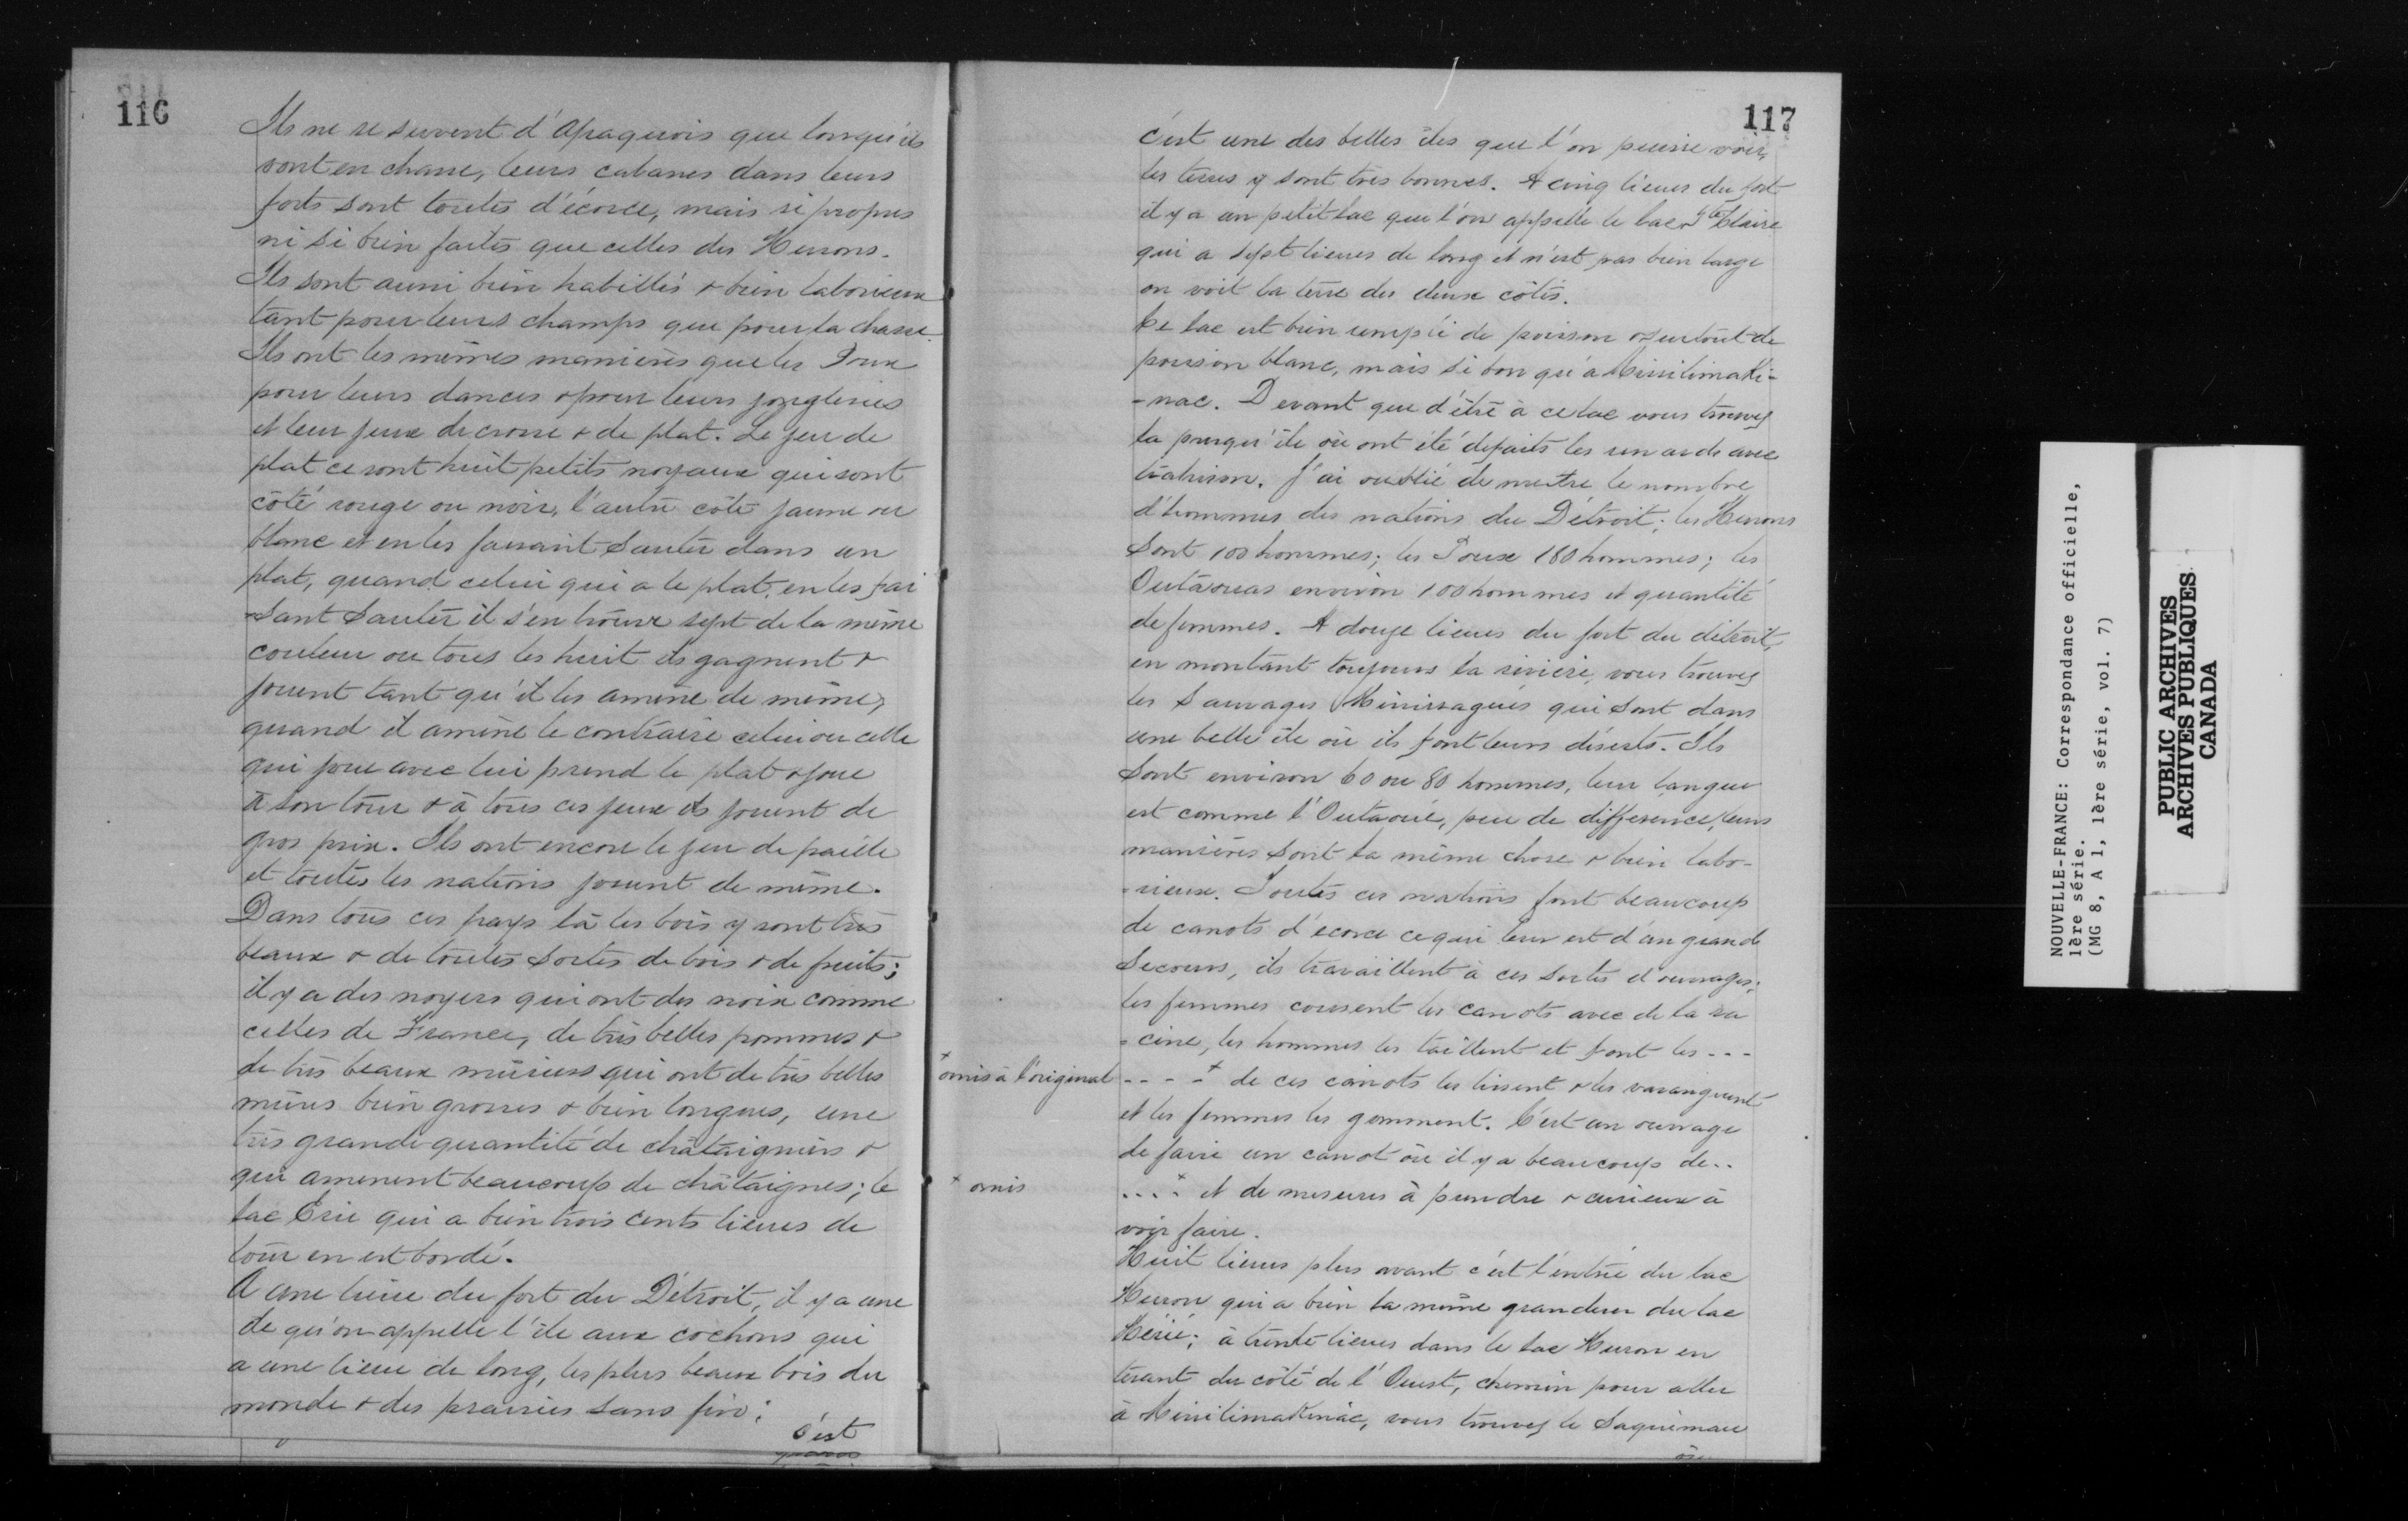 116
Ils ne se servent d'Apaquois que lorsqu'ils
sont en chasse, leurs cabanes dans leurs
forts sont toutes d'écorce, mais si propres
ni si bien faites que celles des Hurons.
Ils sont aussi bien habillés & bien laborieux
tant pour leurs champs que pour la chasse.
Ils ont les mêmes manières que les Poux
pour leurs dances & pour leurs jongleries
et leur jeux de crosse & de plat. Le jeu de
plat ce sont huit petits noyaux qui sont
côté rouge ou noir, l'autre côté jaune ou
blanc et en les faisant sauter dans un
plat, quand celui qui a le plat, en les fai
-sant sauter il s'en trouve sept de la même
couleur ou tous les huit ils gagnent &
jouent tant qu'il les amène de même,
quand il amène le contraire celui ou celle
qui joue avec lui prend le plat & joue
à son tour & à tous ces jeux ils jouent de
gros prix. Ils ont encore le jeu de paille
et toutes les nations jouent de même.
Dans tous ces pays là les bois y sont très
beaux & de toutes sortes de bois & de fruits;
il y a des noyers qui ont des noix comme
celles de France, de très belles pommes &
de très beaux mûriers qui ont de très belles
mûres bien grosses & bien longues, une
très grande quantité de châtaigniers &
qui amenent beaucoup de châtaignes; le
lac Érié qui a bien trois cents lieues de
tour en est bordé.
A une lieue du fort du Détroit, il y a une
île qu'on appelle l'île aux cochons qui
a une lieue de long, les plus beaux bois du
monde & des prairies sans fin:
c'est
117
c'est une des belles îles que l'on puisse voir,
les terres y sont très bonnes. A cinq lieues du fort
il y a un petit lac que l'on appelle le lac Ste Claire
qui a sept lieues de long et n'est pas bien large
on voit la terre des deux côtés.
Ce lac est bien rempli de poisson & surtout de
poisson blanc, mais si bon qu'à Missilimaki-
-nac. Devant que d'être à ce lac vous trouvez
la presqu'île où ont été défaits les renards avec
trahison. J'ai oublié de mettre le nombre
d'hommes des nations du Détroit; les Hurons
sont 100 hommes; les Poux 180 hommes; les
Outaouas environ 100 hommes et quantité
de femmes. A douze lieues du fort du détroit,
en montant toujours la rivière, vous trouvez
les Sauvages Missisagués qui sont dans
une belle île où ils font leurs déserts. Ils
sont environ 60 ou 80 hommes, leur langue
est comme l'Outaoué, peu de différence, leurs
manières sont la même chose & bien labo-
-rieux. Toutes ces nations font beaucoup
de canots d'écorce ce qui leur est d'un grand
secours, ils travaillent à ces sortes d'ouvrages;
les femmes cousent les canots avec de la ra
-cine, les hommes les taillent et font les - - -
+ omis à l'original - - - + de ces canots les lissent & les varanguent
et les femmes les gomment. C'est un ouvrage
de faire un canot où il y a beaucoup de . .
+ omis . . . + et de mesures à prendre & curieux à
voir faire.
Huit lieues plus avant c'est l'entrée du lac
Huron qui a bien la même grandeur du lac
Hérié; à trente lieues dans le lac Huron en
tirant du côté de l'Ouest, chemin pour aller
à Missilimakinac, vous trouvez le Saquinau
où
NOUVELLE-FRANCE: Correspondance officielle,
1ère série.
(MG 8, A 1, 1ère série, vol. 7)
PUBLIC ARCHIVES
ARCHIVES PUBLIQUES
CANADA